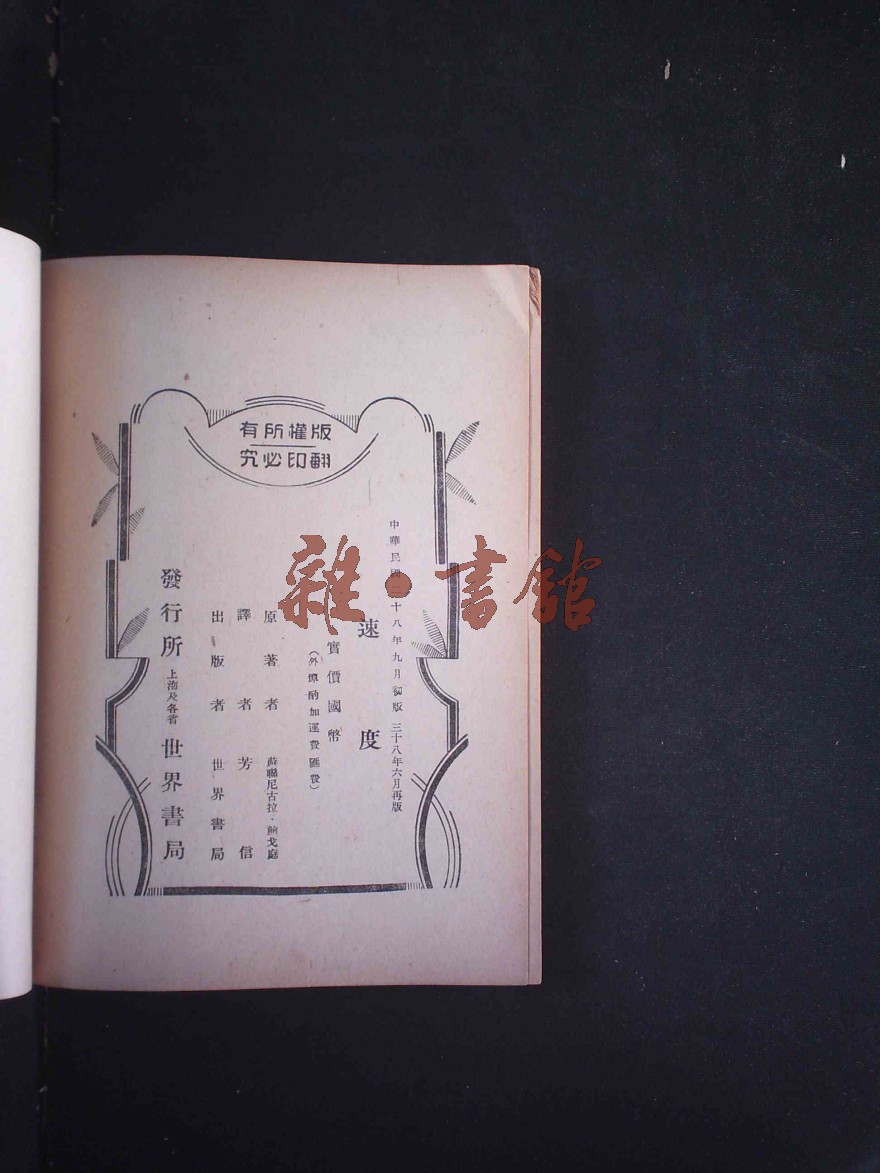 版權所有
翻印必究
中華民國二十八年九月初版 三十八年六月再版
速度
實價國幣
（外埠酌加運費匯費）
原著者 蘇聯尼古拉·鮑戈庭
譯者 芳信
出版者 世界書局
發行所 上海及各省 世界書局
雜·書館